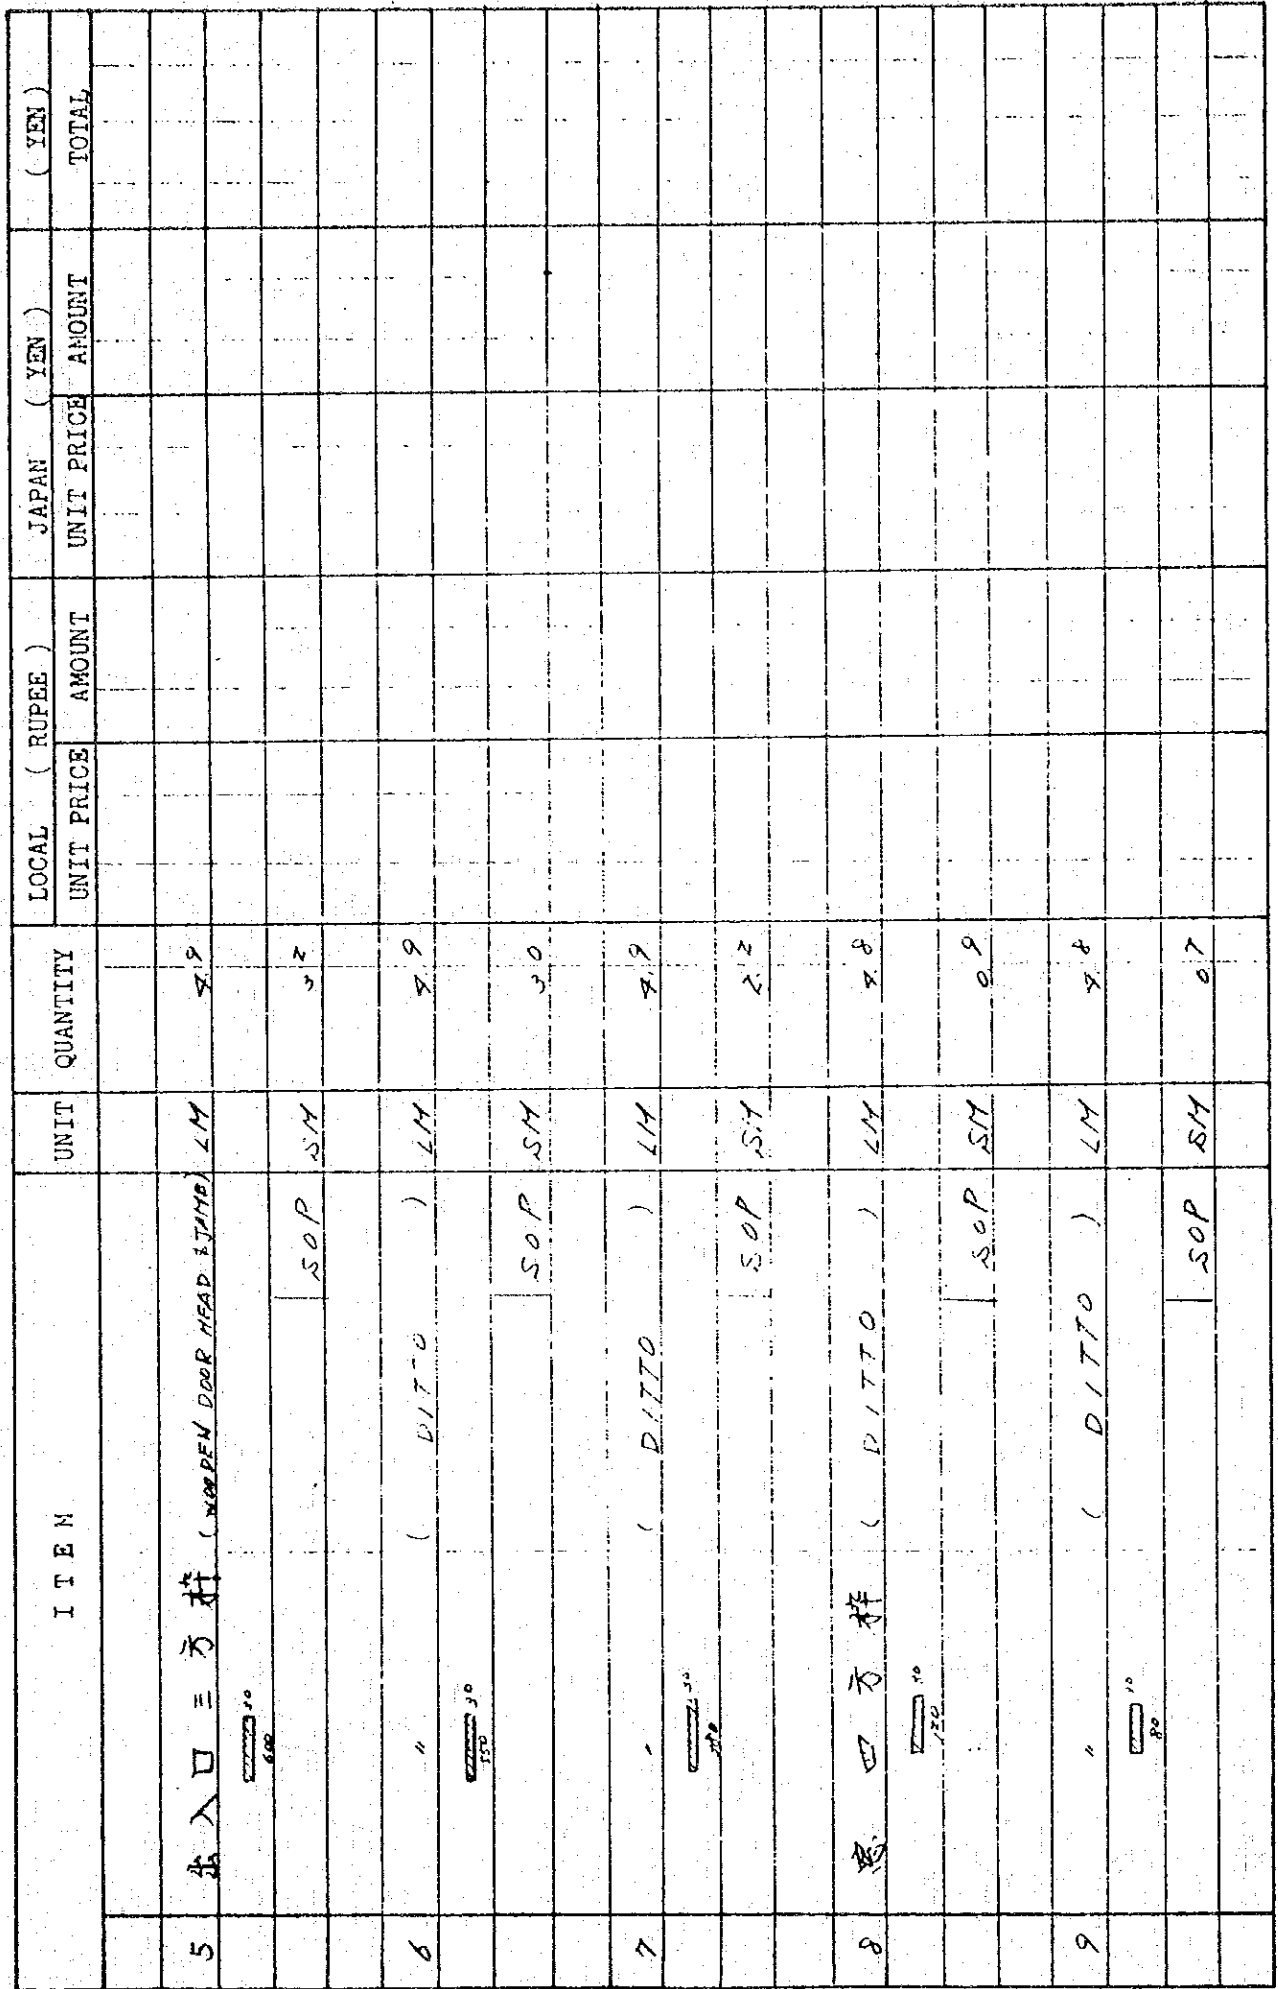 ITEM UNIT QUANTITY LOCAL ( RUPEE ) JAPAN ( YEN ) ( YEN )
UNIT PRICE AMOUNT UNIT PRICE AMOUNT TOTAL
5 出入口三方枠 (WOODEN DOOR HEAD & JAMB) LM 4.9
600 30
SOP SM 3.2
6 〃 ( DITTO ) LM 4.9
550 30
SOP SM 3.0
7 〃 ( DITTO ) LM 4.9
30
SOP SM 2.2
8 窓四方枠 ( DITTO ) LM 4.8
120 10
SOP SM 0.9
9 〃 ( DITTO ) LM 4.8
80 10
SOP SM 0.7